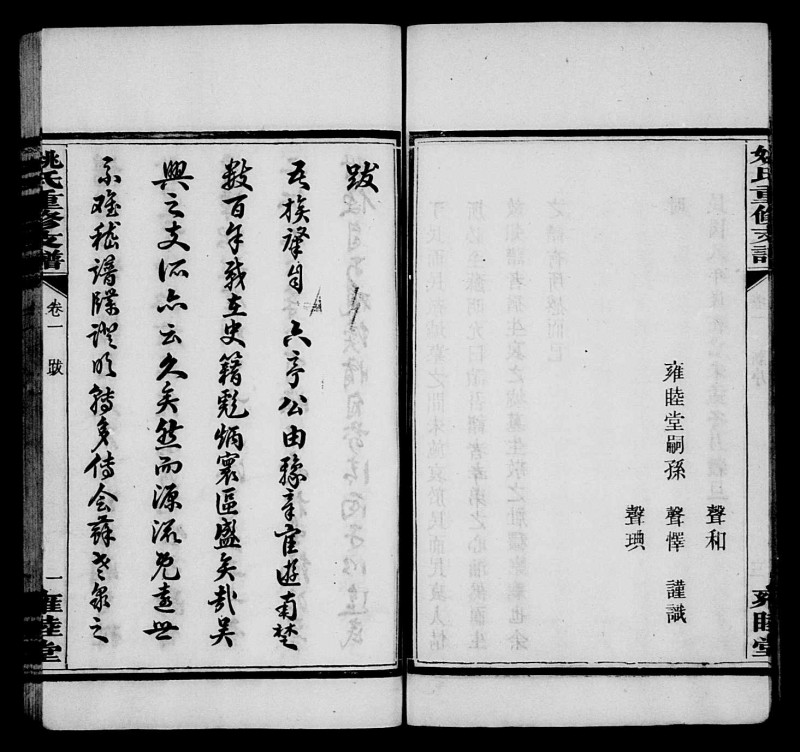 姚氏重修支譜
雍睦堂
聲和
雍睦堂嗣孫 聲懌 謹識
聲琠
跋
吾族肇自 六亭公由豫章宦遊南楚
數百年載在史籍彪炳寰區盛矣哉吳
興之支派亦云久矣然而源流既遠世
系難稽譜牒證明轉多傅會蘇老泉之
姚氏重修支譜 卷一 跋 一 雍睦堂